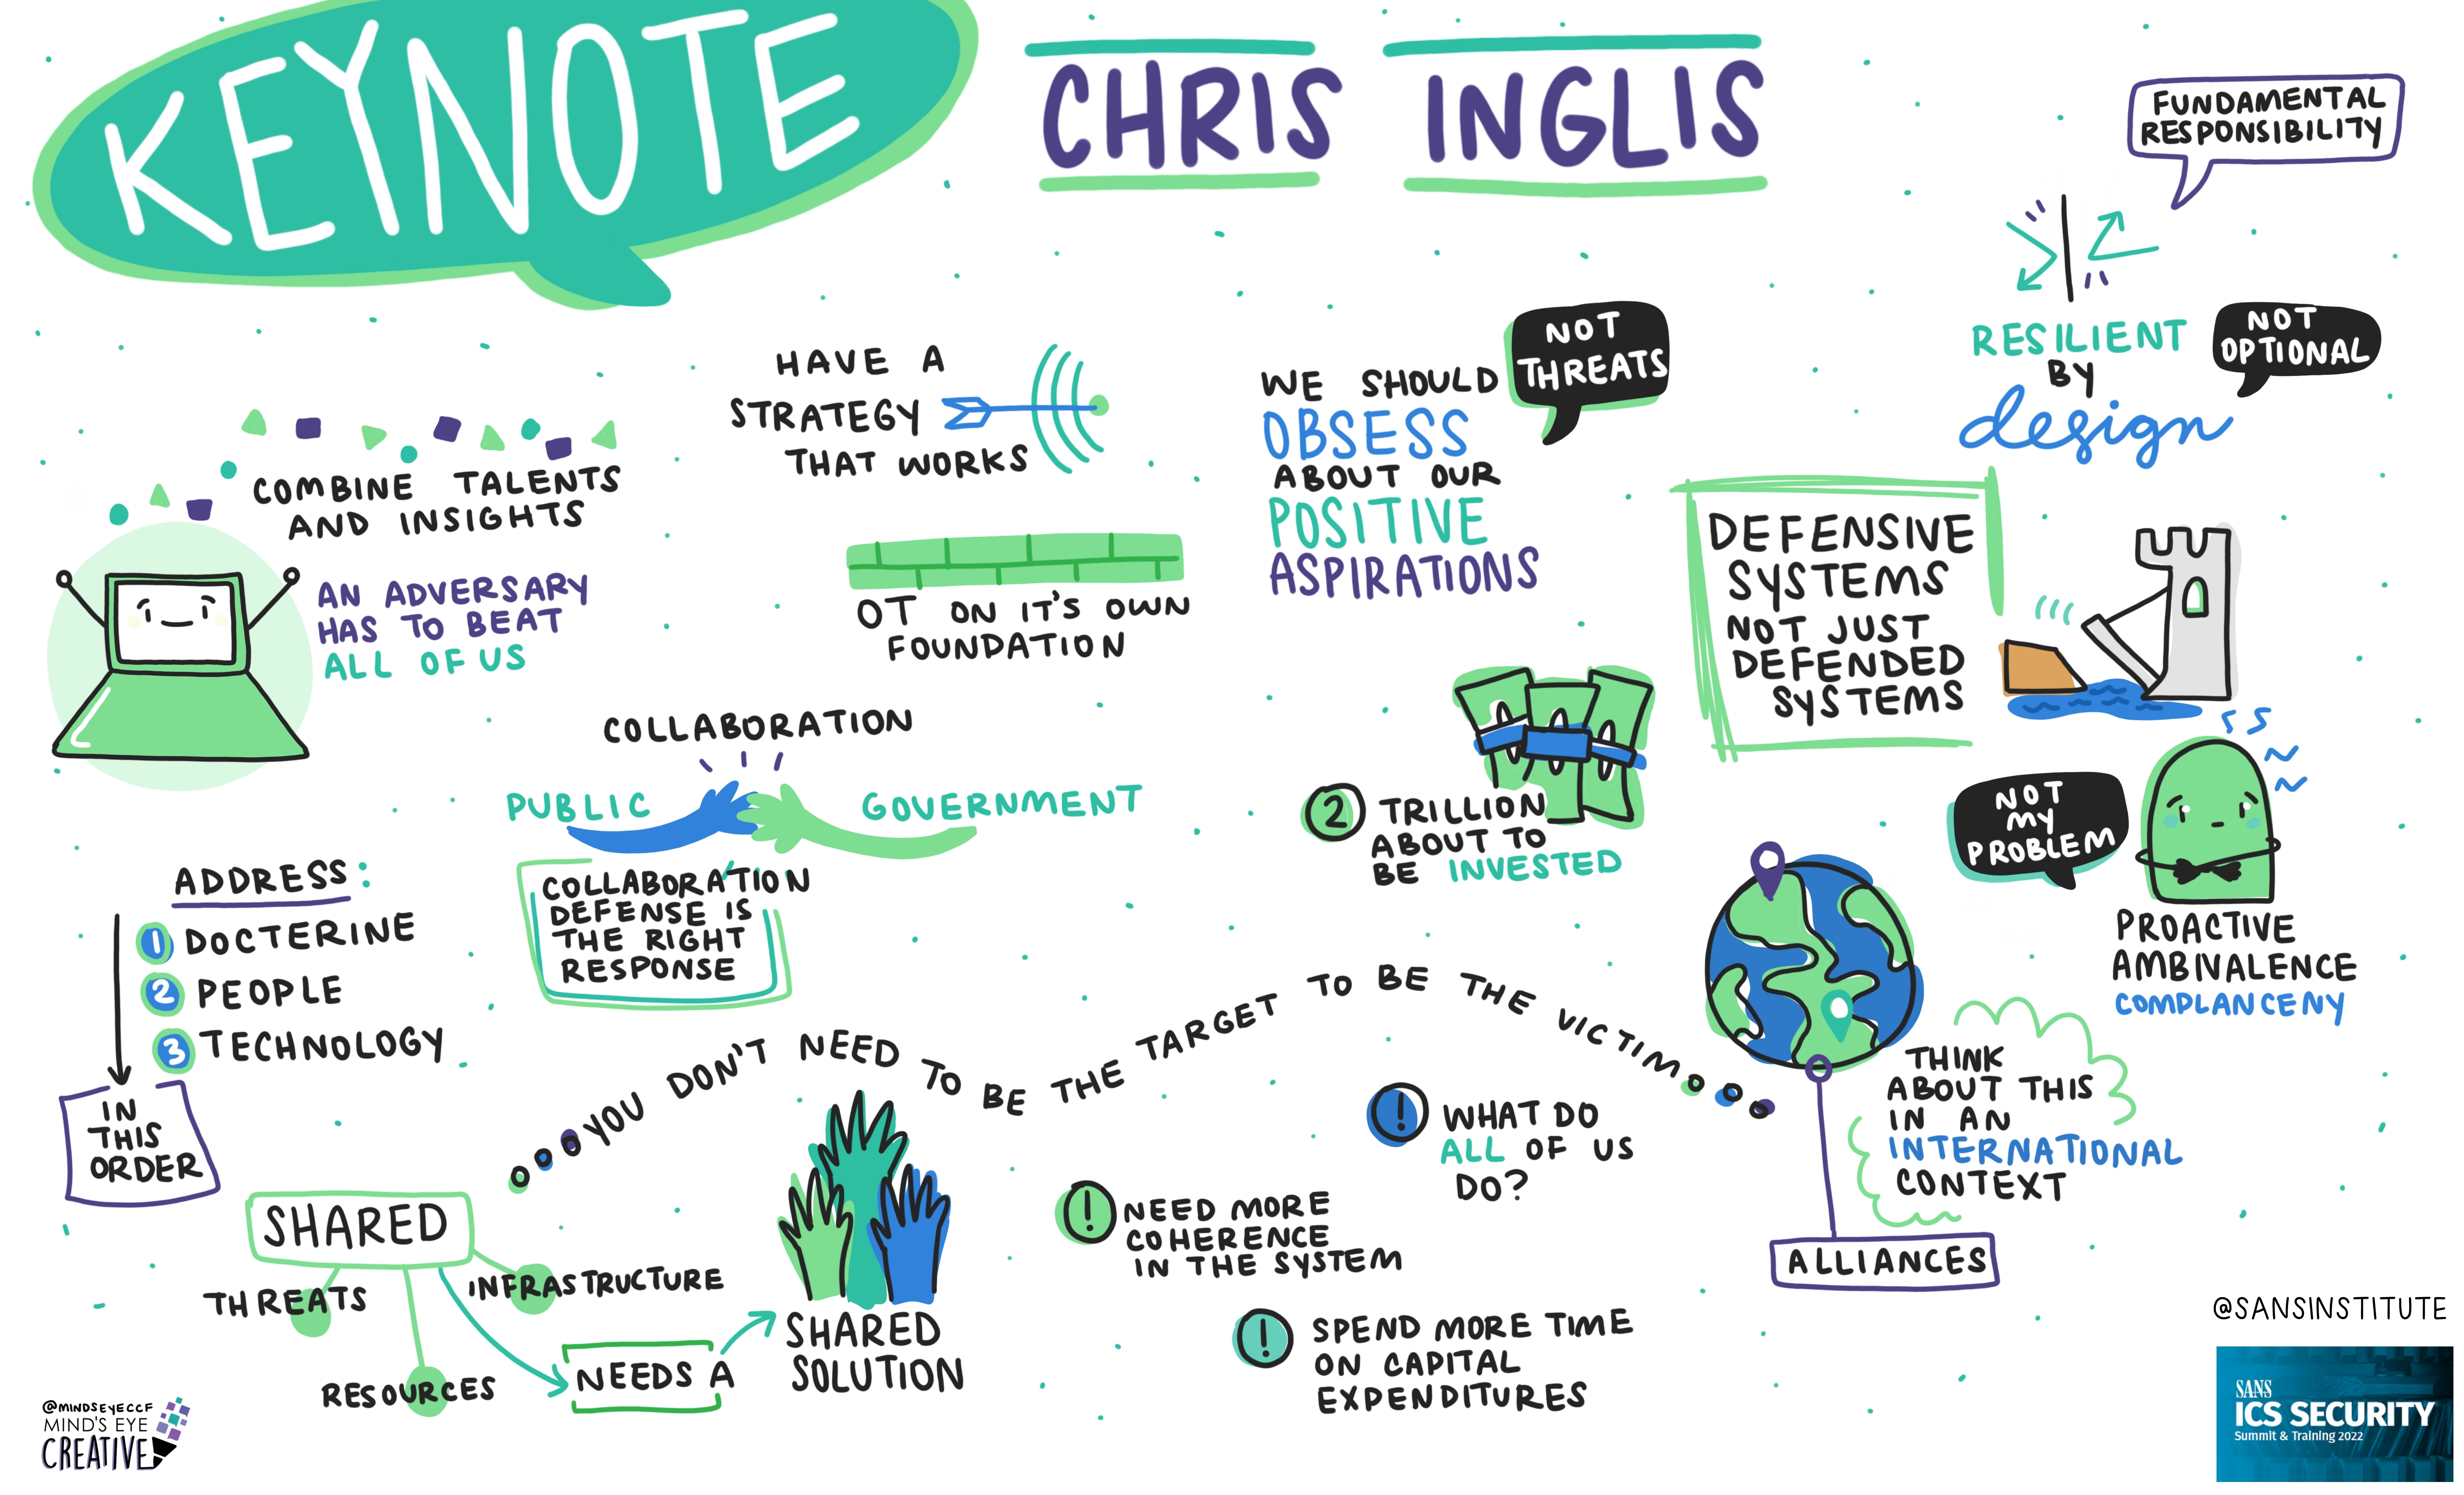 KEYNOTE
CHRIS INGLIS
FUNDAMENTAL
RESPONSIBILITY
RESILIENT
BY
design
NOT
OPTIONAL
COMBINE TALENTS
AND INSIGHTS
AN ADVERSARY
HAS TO BEAT
ALL OF US
HAVE A
STRATEGY
THAT WORKS
OT ON IT'S OWN
FOUNDATION
NOT
THREATS
WE SHOULD
OBSESS
ABOUT OUR
POSITIVE
ASPIRATIONS
DEFENSIVE
SYSTEMS
NOT JUST
DEFENDED
SYSTEMS
COLLABORATION
PUBLIC
GOVERNMENT
COLLABORATION
DEFENSE IS
THE RIGHT
RESPONSE
2 TRILLION
ABOUT TO
BE INVESTED
NOT
MY
PROBLEM
PROACTIVE
AMBIVALENCE
COMPLANCENY
ADDRESS:
1 DOCTERINE
2 PEOPLE
3 TECHNOLOGY
IN
THIS
ORDER
YOU DON'T NEED TO BE THE TARGET TO BE THE VICTIM
THINK
ABOUT THIS
IN AN
INTERNATIONAL
CONTEXT
ALLIANCES
SHARED
THREATS
RESOURCES
INFRASTRUCTURE
NEEDS A
SHARED
SOLUTION
! WHAT DO
ALL OF US
DO?
! NEED MORE
COHERENCE
IN THE SYSTEM
! SPEND MORE TIME
ON CAPITAL
EXPENDITURES
@MINDSEYECCF
MIND'S EYE
CREATIVE
@SANSINSTITUTE
SANS
ICS SECURITY
Summit & Training 2022